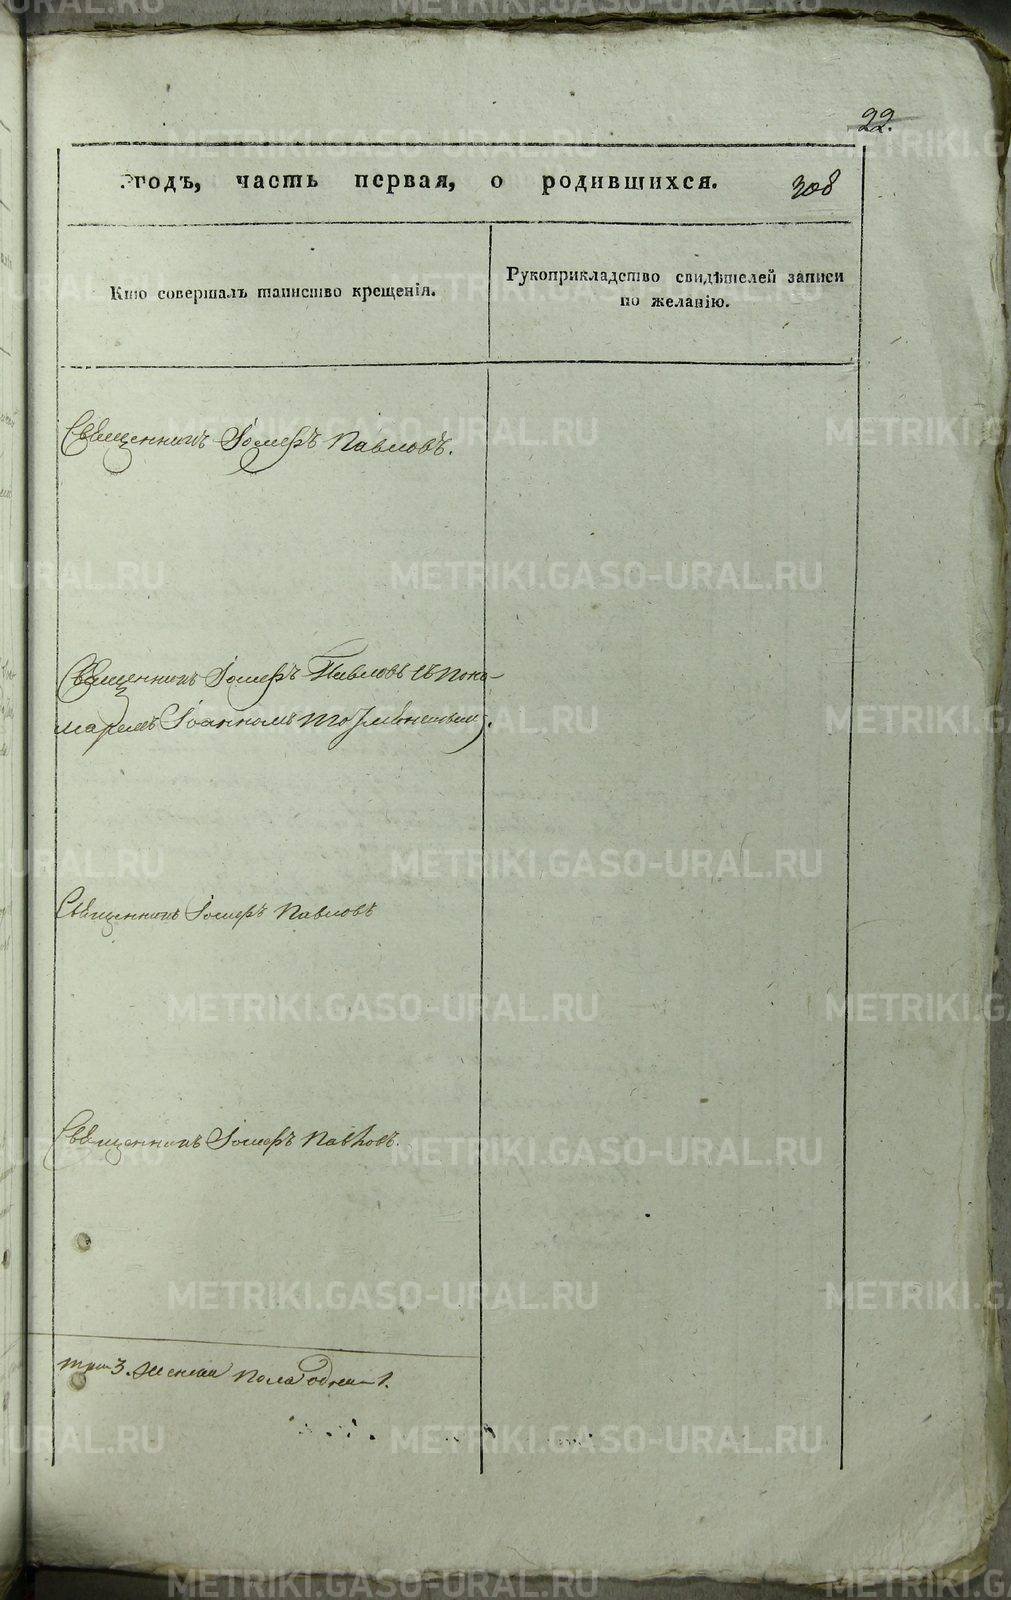 22.
годъ, часть первая, о родившихся. 308
Кто совершалъ таинство крещенія.
Рукоприкладство свидѣтелей записи
по желанію.
Священникъ Іосифъ Павловъ.
Священникъ Іосифъ Павловъ съ поно-
маремъ Іоанномъ
Священникъ Іосифъ Павловъ
Священникъ Іосифъ Павловъ.
три 3. женска пола одна 1.
METRIKI.GASO-URAL.RU